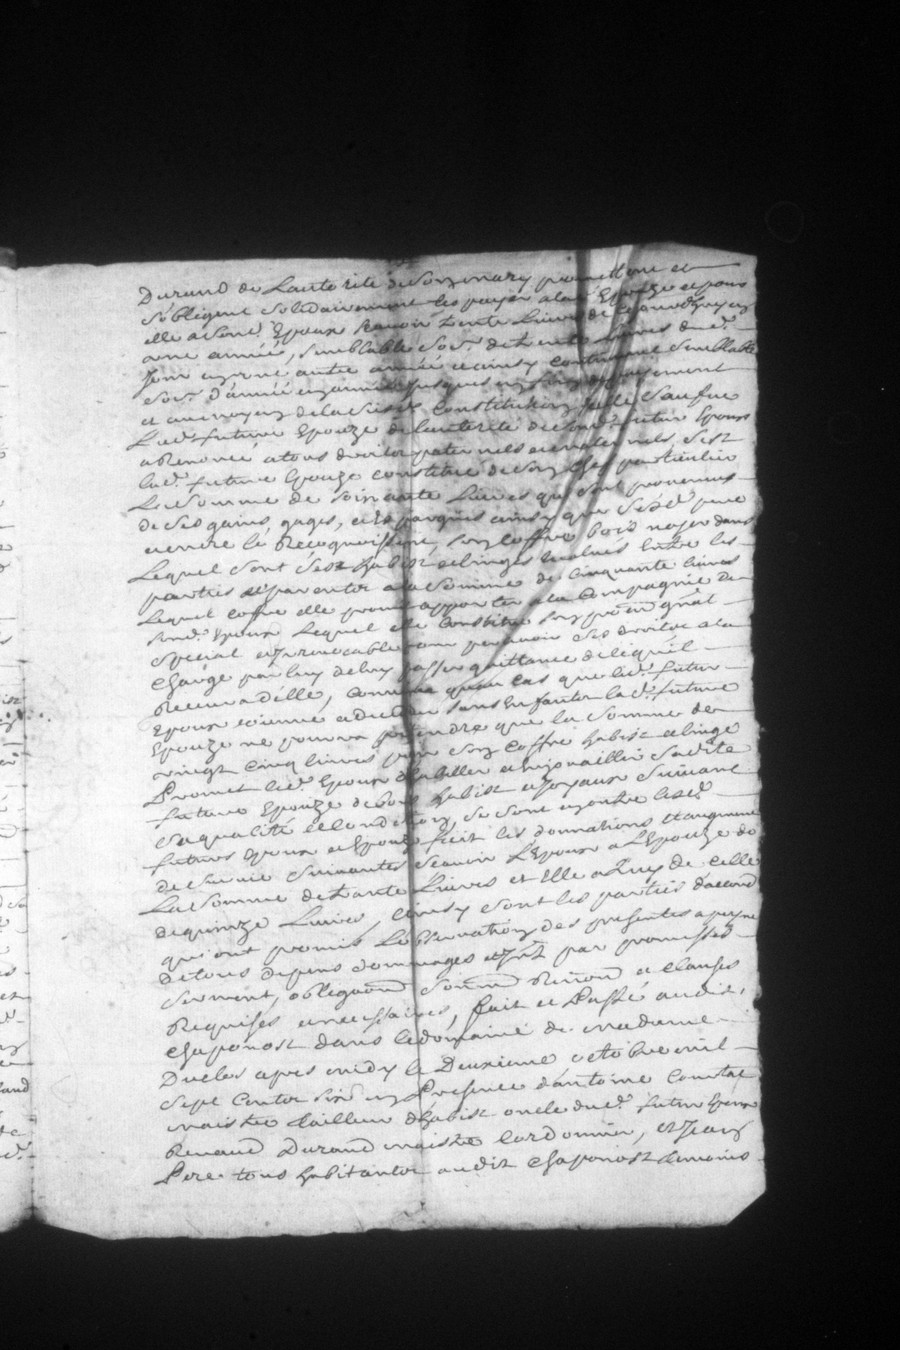 Durand de Lautorité de Son mary promettent et
S'obligent Solidairement les payer alad. Epouze et pour
elle a Sond. Epoux Scavoir trente Livres de ce jourdhuy en
une année, Semblable Som. de trente Livres dud.
Jour en une autre année et ainsy continuer Semblable
Som. d'année en année jusques en fin de payement
et au moyen de la Susd. Constitution elle Sauf
Lad. future Epouze de lautorité de Sond. futur Epoux
a Renoncé a tous droits paternels et maternels, S'est
lad. future Epouze constitué de Son Chef particulier
La Somme de Soixante Livres qui Sont provenus
de Ses gains, gages, et Epargnes ainsy que Sesd. pere
et mere le Recognoissent, Son Coffre bois noyer dans
Lequel Sont Ses habist et linges Evalués Entre les
parties Et parentes a la Somme de Cinquante livres
Lequel coffre elle promet apporter a la Compagnie du
Sond. Epoux Lequel elle Constitue Son prõcur gñal
Special et Irrevocable pour percevoir Ses droits a la
Charge par luy de luy passer quittance de lequel
Receu a d'elle, comme qu'au cas que led. futur
Epoux vienne a deceder Sans Enfants lad. future
Epouze ne pourra pretendre que la Somme de
vingt cinq livres pour Son Coffre habist et linge
Promet led. Epoux d'habiller et enjouailler Sadite
future Epouze de bons habist et Joyaux Suivant
Sa qualité et Condition, Se Sont en outre lesd.
futurs Epoux et Epouze fait les donnations et augment
de Survie Suivantes Scavoir L'Epoux a L'Epouze de
La Somme de trante Livres et Elle a Luy de celle
de quinze Livres, Ainsy Sont les parties d'accord
qui ont promis L'observation des presentes a peyne
de tous depens dommages et Jnt par promesses
Serment, obligaõn Soumõn Renõn et Clauses
Requises et necessaires, fait et Passé audit
Chaponost dans le domaine de madame
Duclos apres midy le Deuxieme octobre mil
Sept Cents Six en Presence d'antoine Constat
maistre tailleur d'habist oncle dud. futur Epoux
Renaud Durand maistre Cordonnier, et Jean
Pere tous habitants audit Chaponost temoins